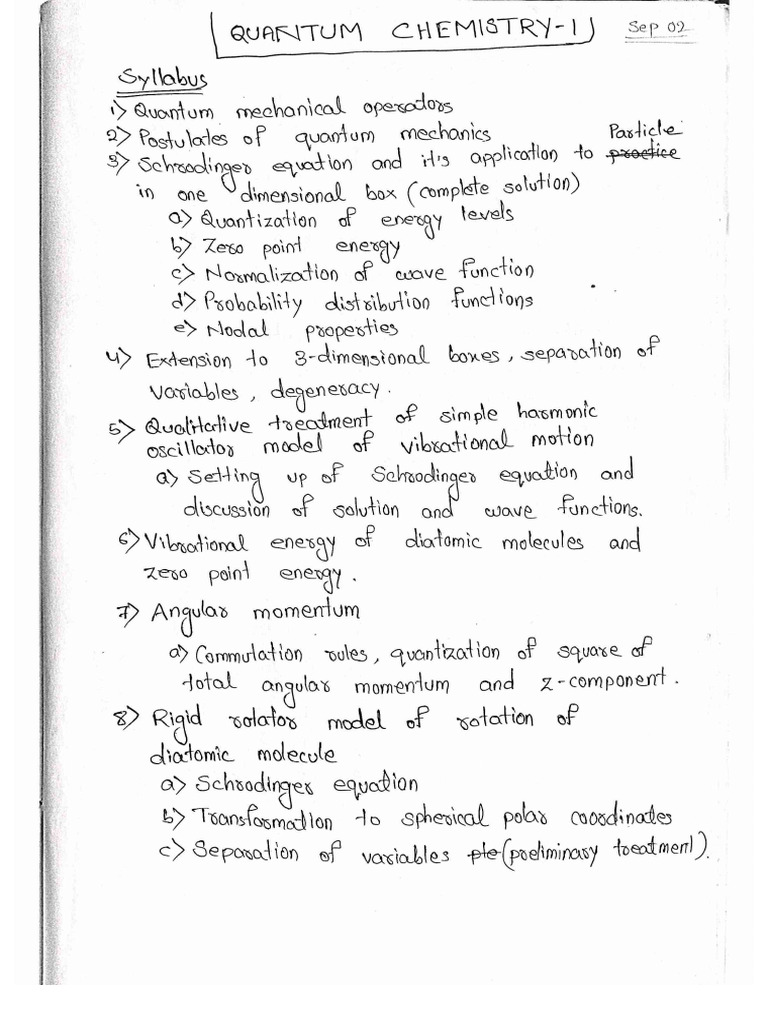 QUANTUM CHEMISTRY-I
Sep 02
Syllabus
1) Quantum mechanical operators
2) Postulates of quantum mechanics
3) Schroodinger equation and it's application to Particle practice
in one dimensional box (complete solution)
a) Quantization of energy levels
b) Zero point energy
c) Normalization of wave function
d) Probability distribution functions
e) Nodal properties
4) Extension to 3-dimensional boxes, separation of
variables, degeneracy.
5) Qualitative treatment of simple harmonic
oscillator model of vibrational motion
a) Setting up of Schroodinger equation and
discussion of solution and wave functions.
6) Vibrational energy of diatomic molecules and
zero point energy.
7) Angular momentum
a) Commulation rules, quantization of square of
total angular momentum and z-component.
8) Rigid rotator model of rotation of
diatomic molecule
a) Schroodinger equation
b) Transformation to spherical polar coordinates
c) Separation of variables pte (preliminary treatment).